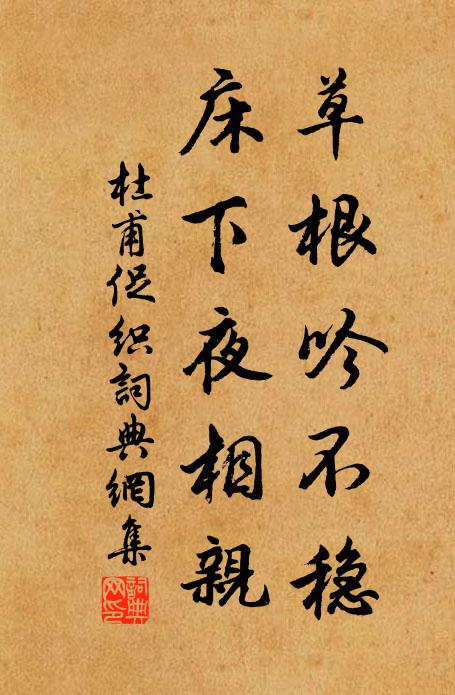 草根吟不稳
床下夜相親
杜甫促织詞典網集
詞典网印